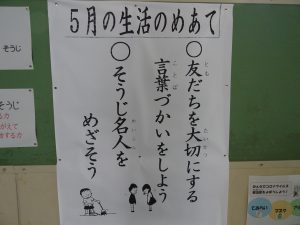 5月の生活のめあて
○友だちを大切にする
言葉づかいをしよう
○そうじ名人を
めざそう
そうじ